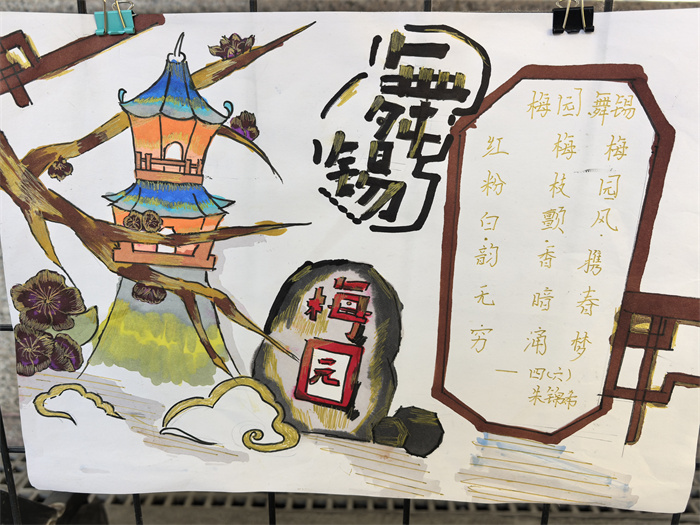 舞锡
梅园
梅园舞锡
梅园风·携春梦
梅枝颤·香暗涌
红粉白·韵无穷
— 四(六)